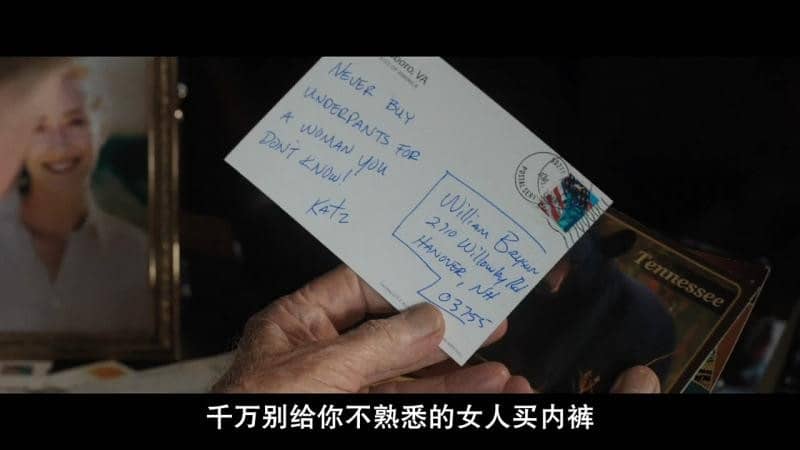 boro, VA
OF AMERICA
NEVER BUY
UNDERPANTS FOR
A WOMAN YOU
DON'T KNOW!
KATZ
William Bryson
2710 Willowby Rd
HANOVER, NH
03755
Tennessee
千万别给你不熟悉的女人买内裤